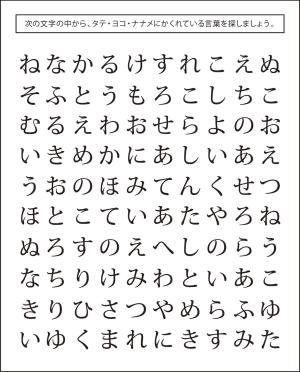 次の文字の中から、タテ・ヨコ・ナナメにかくれている言葉を探しましょう。
ねなかるけすれこえぬ
そふとうもろこしちこ
むるえわおせらよのお
いきめかにあしいあえ
うおのほみてんくせつ
ほとこていあたやろね
ぬろすのえへしのらう
なちりけみわといあこ
きりひさつやめらふゆ
いゆくまれにきすみた